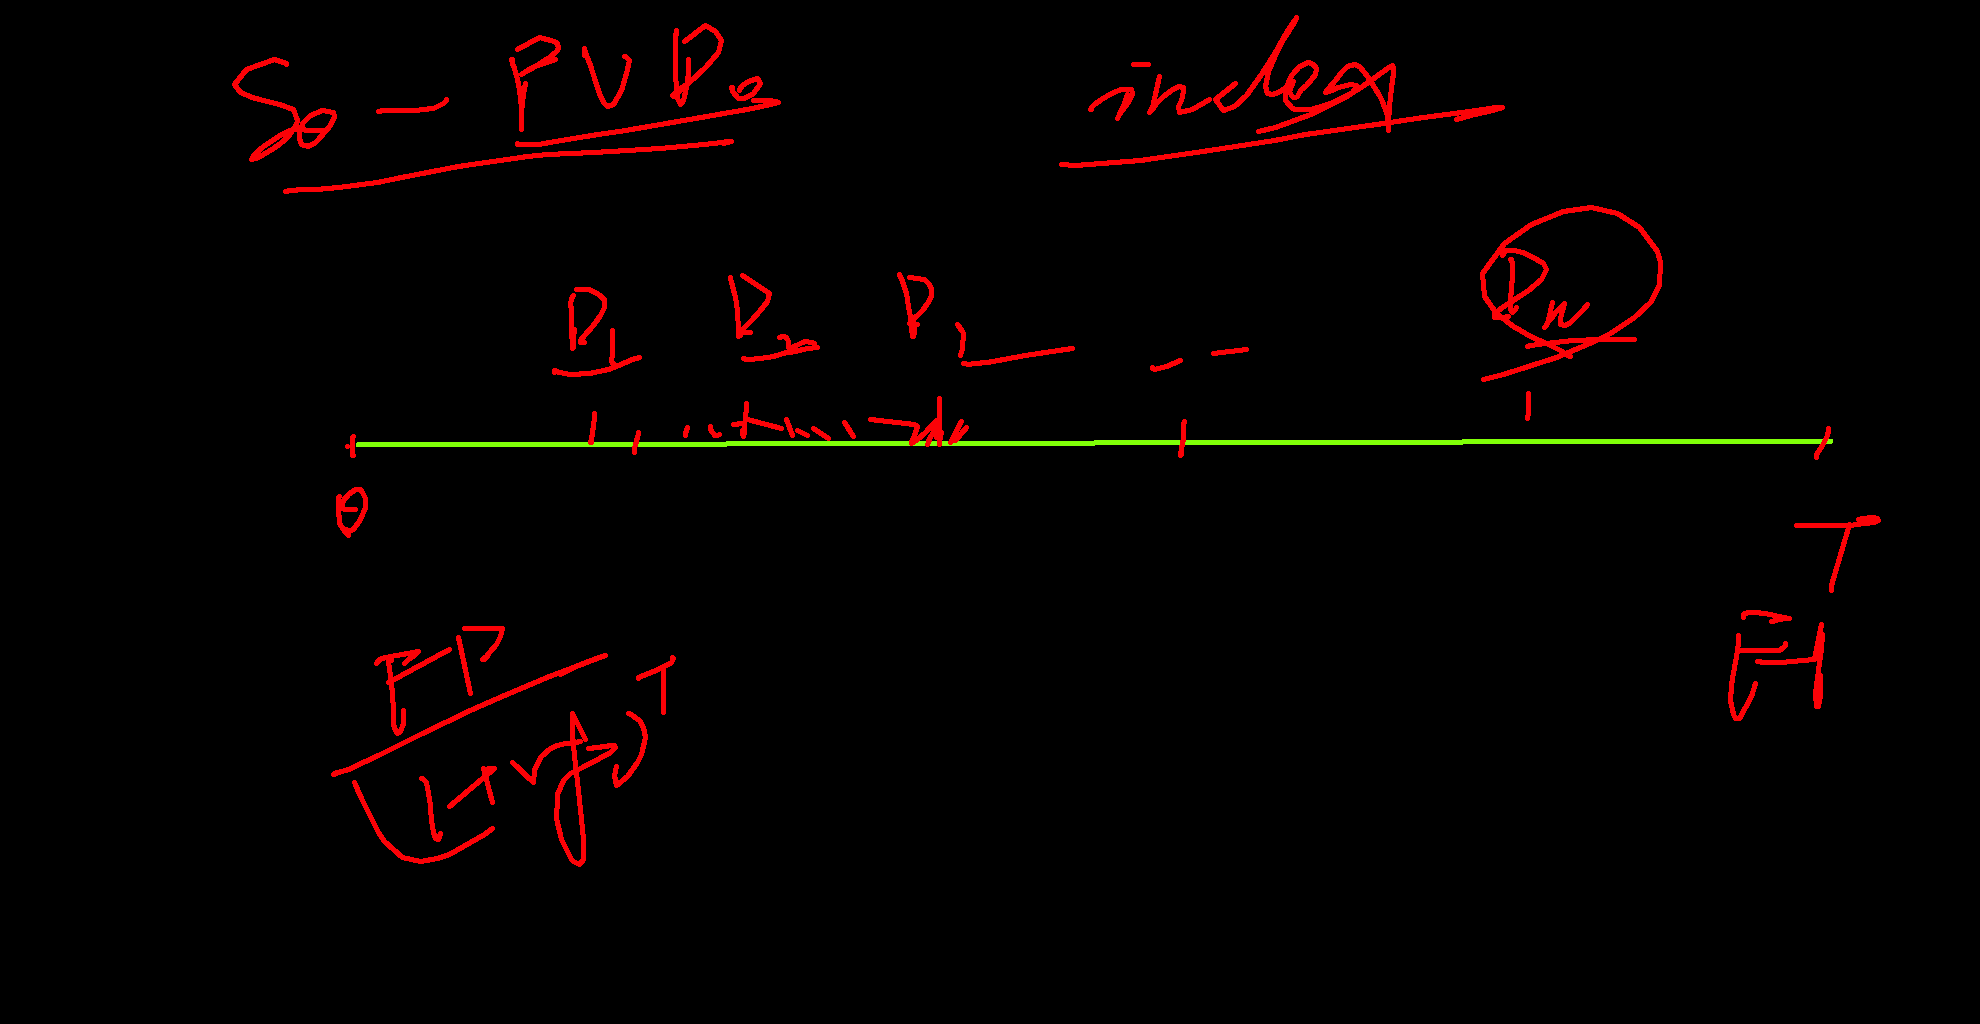 S0 - PVD0 index
D1 D2 D, - - Dn
0 T
FP
(1+rf)^T